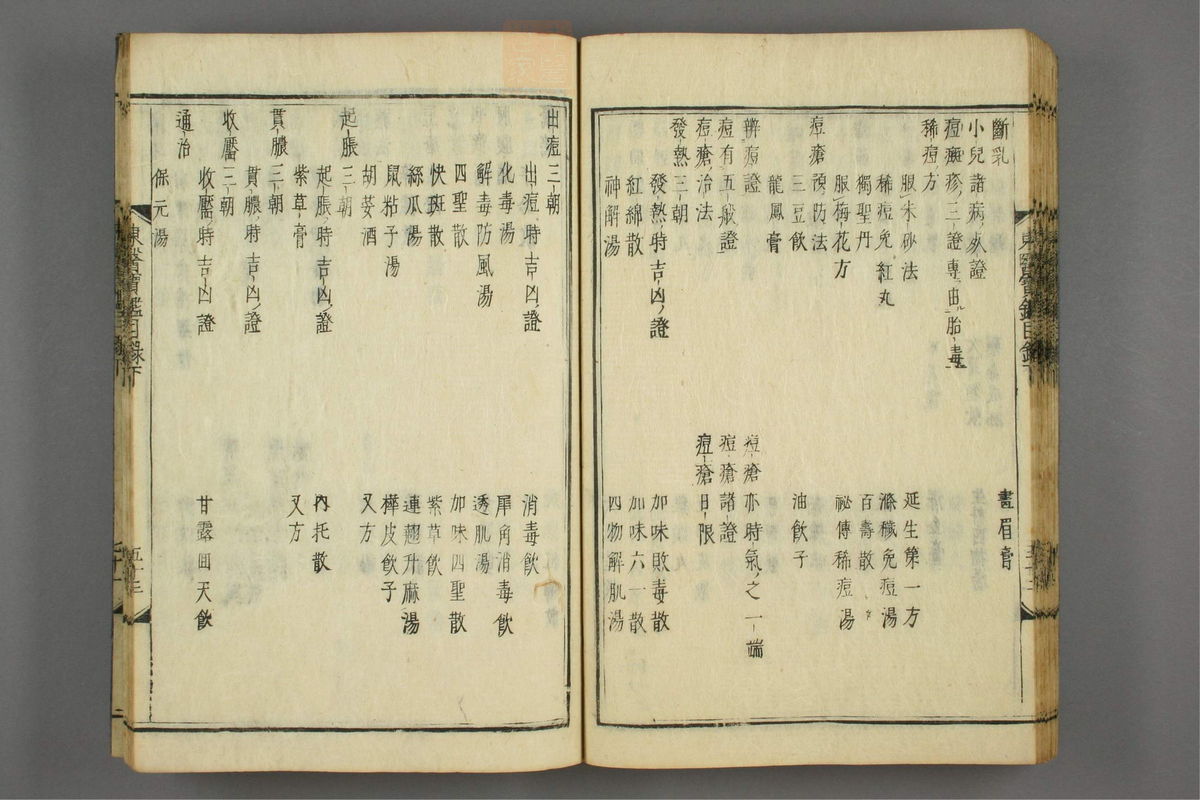 斷乳
畫眉膏
小兒諸病死證
痘癍疹三證專由胎毒
稀痘方
延生第一方
服朱砂法
滌穢免痘湯
稀痘兔紅丸
百壽散
獨聖丹
秘傳稀痘湯
服梅花方
痘瘡預防法
油飲子
三豆飲
龍鳳膏
辨痘證
痘瘡亦時氣之一端
痘有五般證
痘瘡諸證
痘瘡治法
痘瘡日限
發熱三朝
發熱時吉凶證
加味敗毒散
紅綿散
加味六一散
神解湯
四物解肌湯
出痘三朝
出痘時吉凶證
消毒飮
化毒湯
犀角消毒飮
解毒防風湯
透肌湯
四聖散
加味四聖散
快斑散
紫草飮
絲瓜湯
連翹升麻湯
鼠粘子湯
樺皮飮子
胡荽酒
又方
起脹三朝
起脹時吉凶證
內托散
紫草膏
又方
貫膿三朝
貫膿時吉凶證
收靨三朝
收靨時吉凶證
甘露回天飮
通治
保元湯
東醫寶鑑目錄下